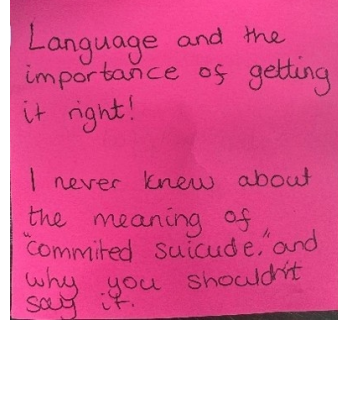 Language and the
importance of getting
it right!
I never knew about
the meaning of
"commited suicude." and
why you shouldn't
say it.